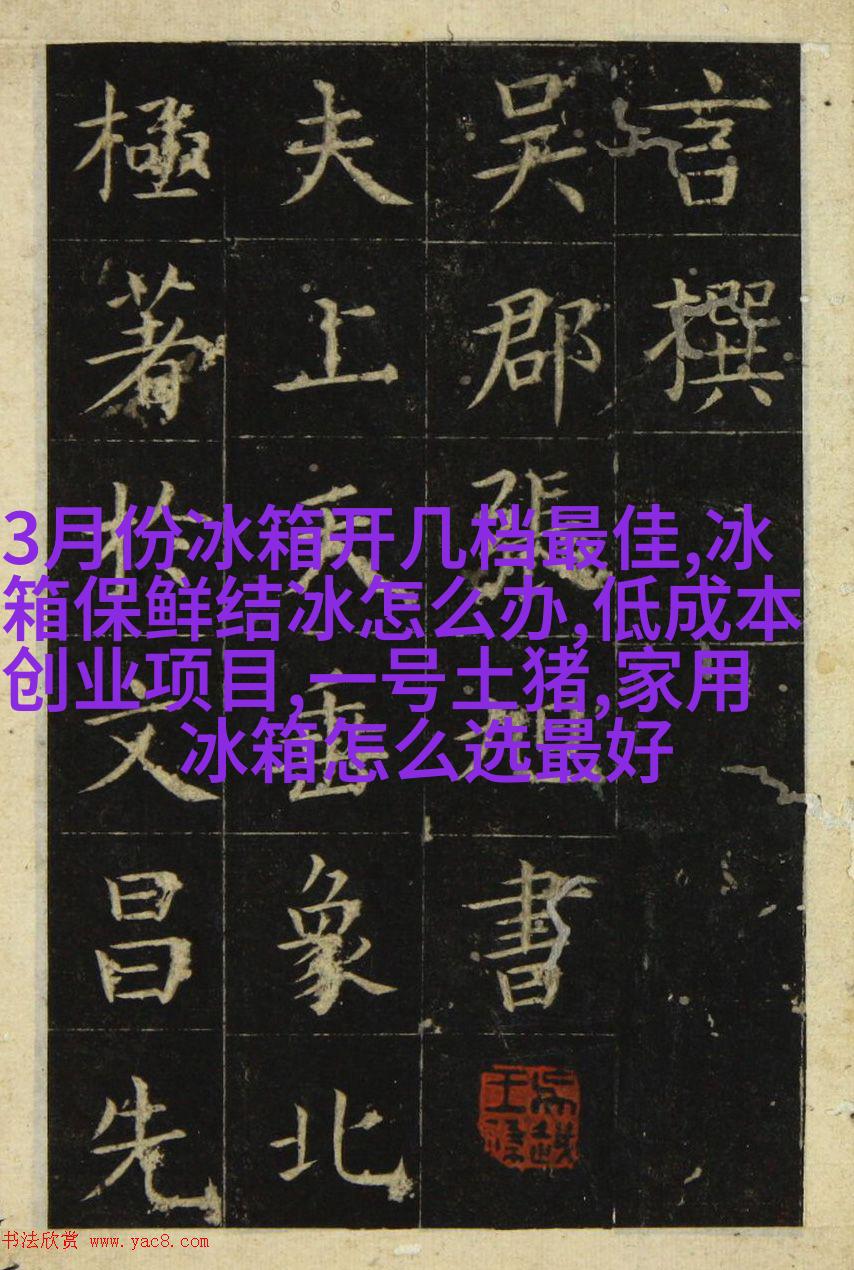 言撰
吳郡張書
夫上天垂象北
極著於文昌先
3月份冰箱开几档最佳,冰
箱保鲜结冰怎么办,低成本
创业项目,一号土猪,家用
冰箱怎么选最好
书法欣赏 www.yac8.com